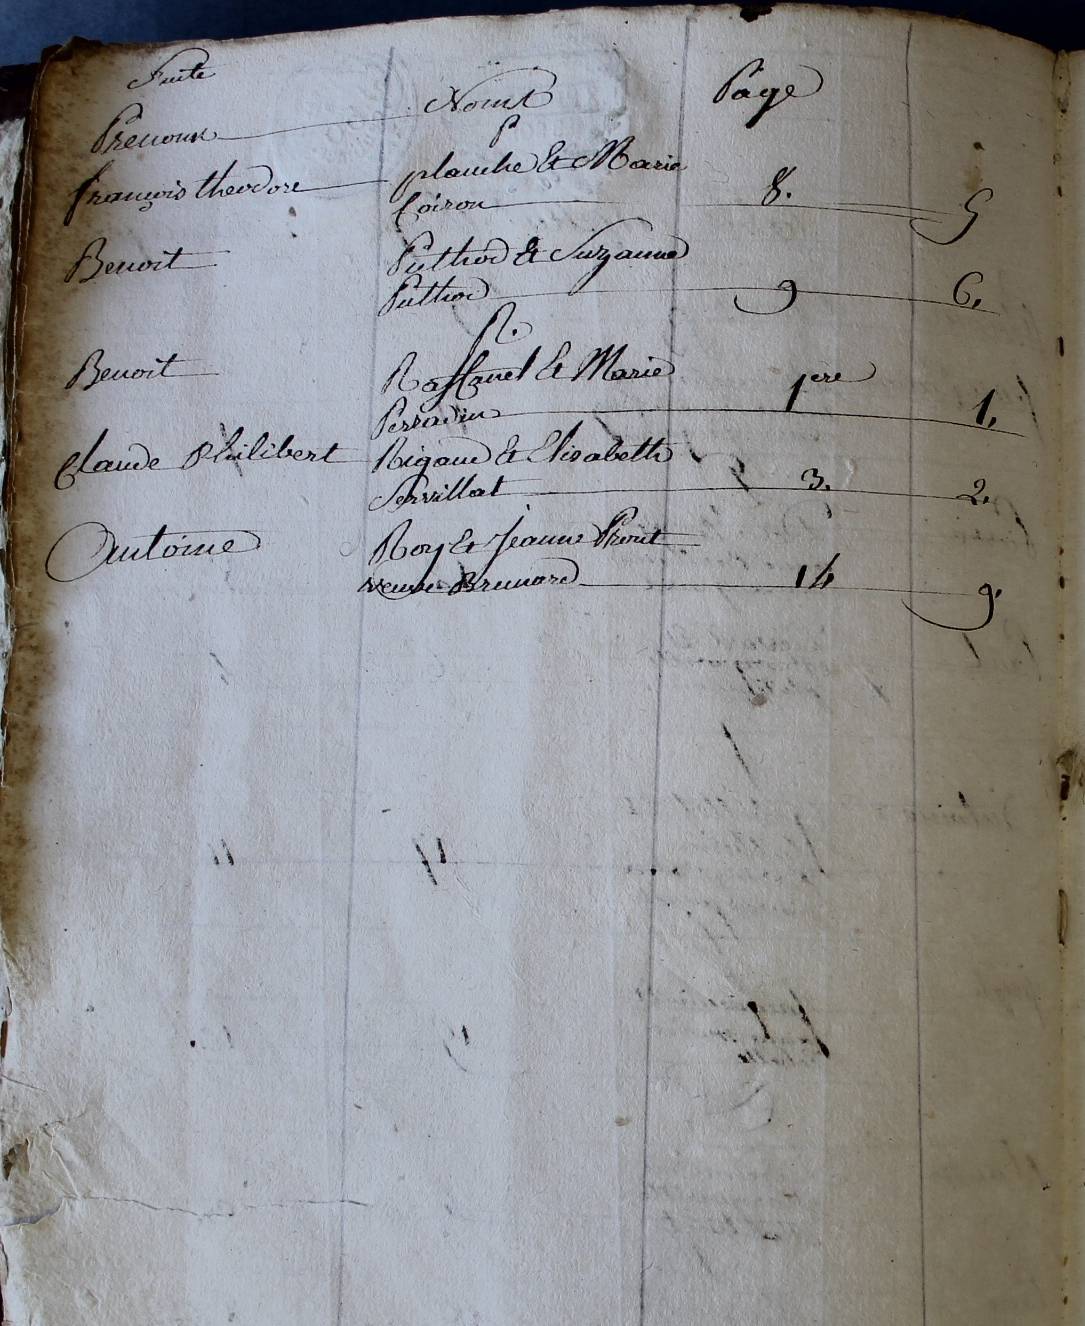 Suite
Prenoms Noms Page
P
françois theodore planche Et Marie
Coiron 8. 5
Benoit Puthod Et Suzanne
Puthod 9 6.
R.
Benoit Et Marie
Perradin 1ere 1.
Claude Philibert Rigaud Et Elisabeth
Servillat 3. 2.
Antoine Roy Et Jeanne
veuve Brunard 14 9.